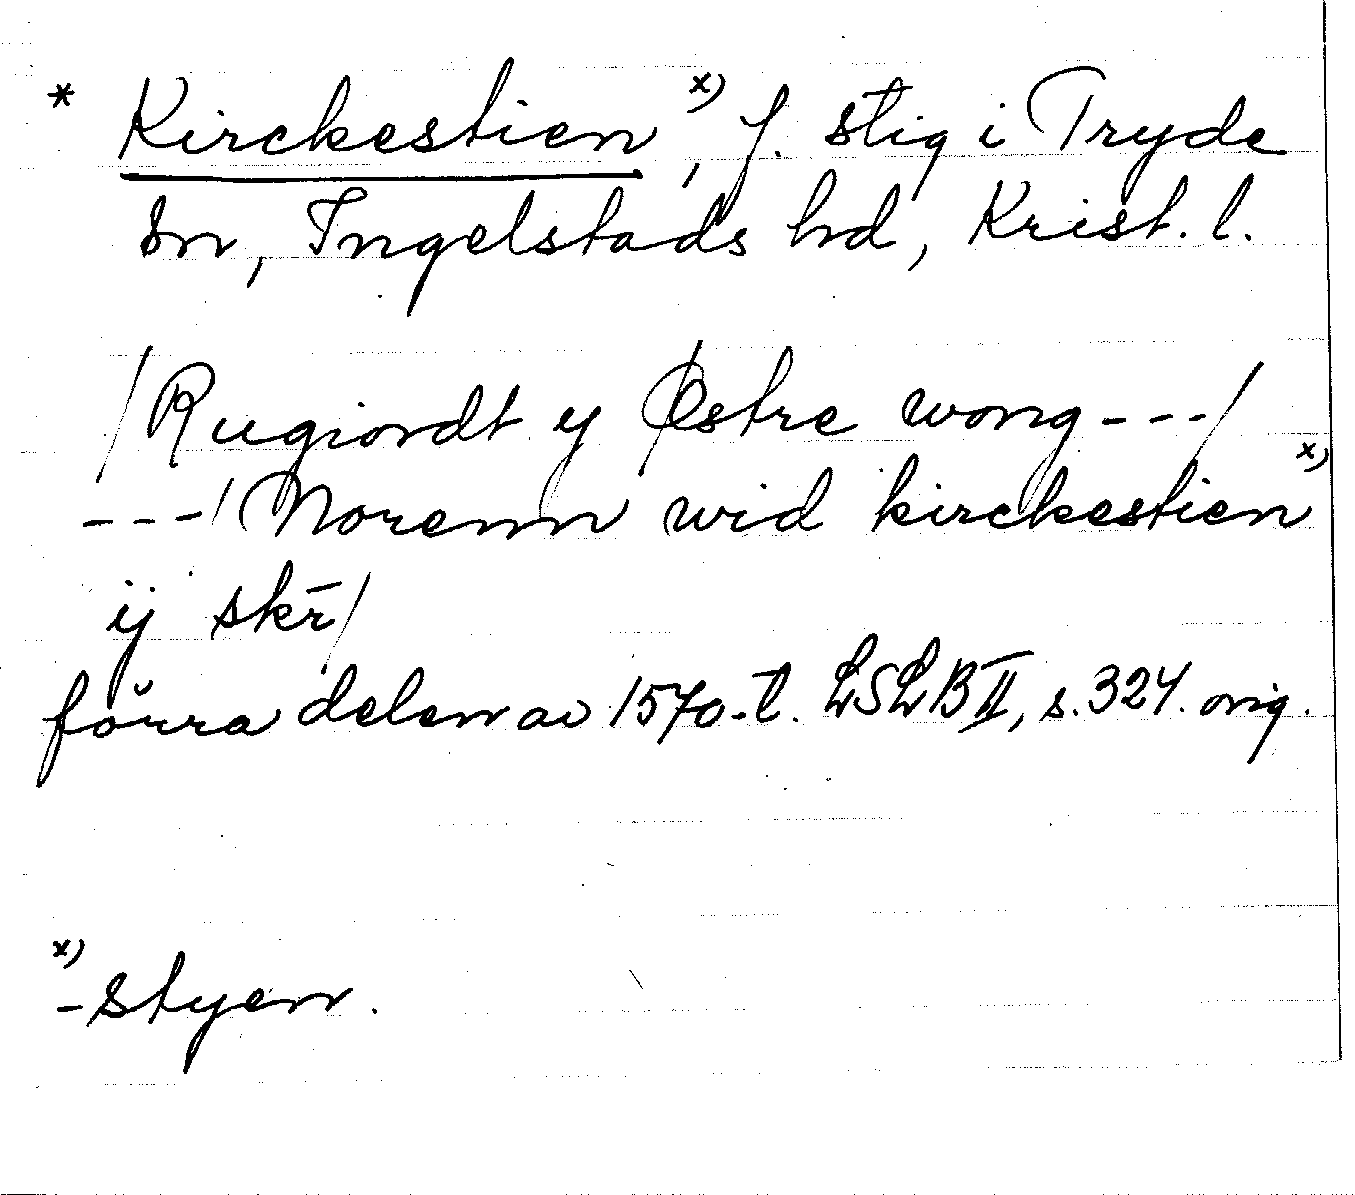 * Kirckestien x), f. stig i Tryde
sn, Ingelstads hd, Krist. l.
/Rugiordt y Østre wong---/
---/Norenn wid kirckestien x)
ij skr̄/
förra delen av 1570-t. LSLB II, s. 324. orig.
x)
-styen.